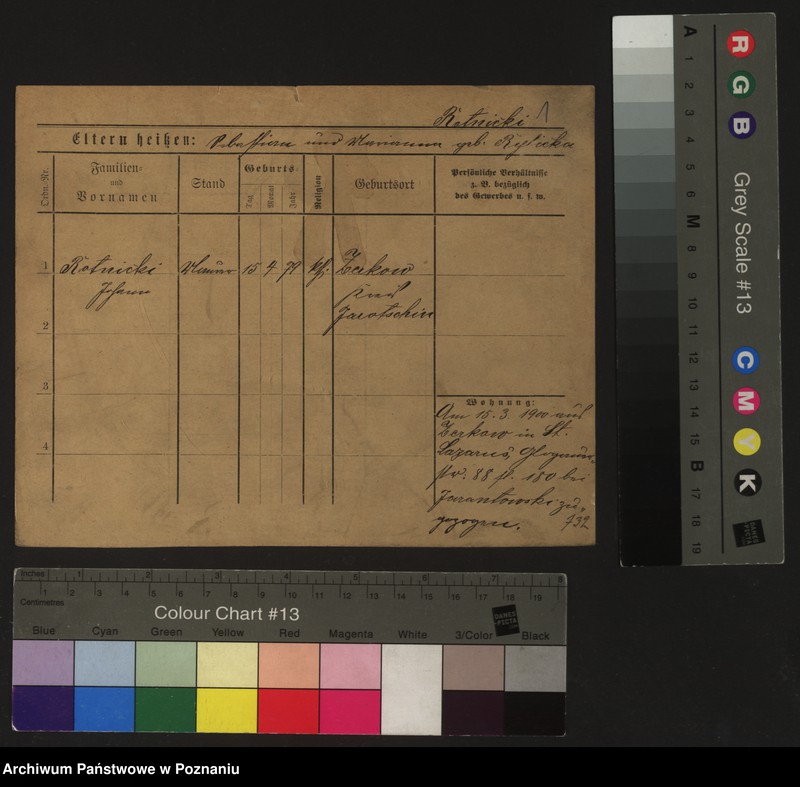 Rotnicki 1
Eltern heißen: Sebastian und Marianna geb. Rylicka
Ordn.-Nr.
Familien-
und
Vornamen
Stand
Geburts-
Tag
Monat
Jahr
Religion
Geburtsort
Persönliche Verhältnisse
z. B. bezüglich
des Gewerbes u. s. w.
1 Rotnicki Maurer 15 4 79 kth. Zerkow
Johann
Kreis
2 Jarotschin
3
4
Wohnung:
Am 15. 3. 1900 aus
Zerkow in St.
Lazarus, Glogauer-
str. 88 p. 150 bei
Jarantowski zu-
gezogen. 732
Inches 1 2 3 4 5 6 7 8
1 2 3 4 5 6 7 8 9 10 11 12 13 14 15 16 17 18 19
Centimetres
Colour Chart #13
DANES
PICTA
Blue Cyan Green Yellow Red Magenta White 3/Color Black
A 1 2 3 4 5 6 M 8 9 10 11 12 13 14 15 B 17 18 19
R G B
Grey Scale #13
C M Y K
DANES
PICTA
Archiwum Państwowe w Poznaniu